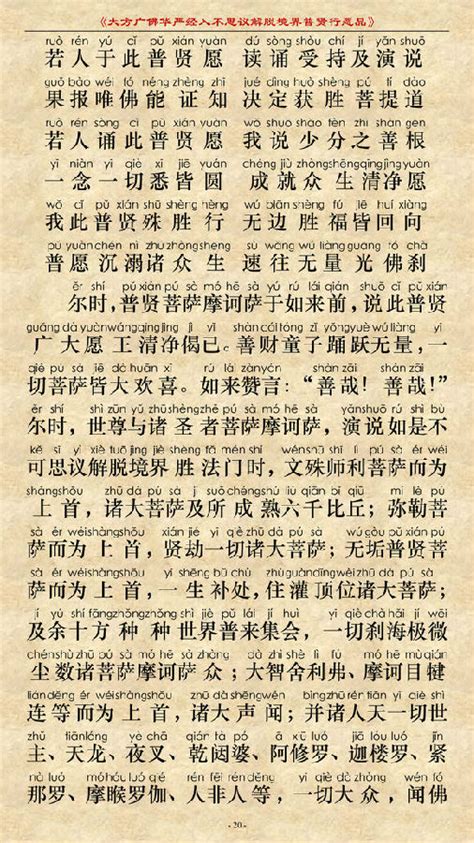 《大方广佛华严经入不思议解脱境界普贤行愿品》
ruò rén yú cǐ pǔ xián yuàn dú sòng shòu chí jí yǎn shuō
若人于此普贤愿 读诵受持及演说
guǒ bào wéi fó néng zhèng zhī jué dìng huò shèng pú tí dào
果报唯佛能证知 决定获胜菩提道
ruò rén sòng cǐ pǔ xián yuàn wǒ shuō shǎo fēn zhī shàn gēn
若人诵此普贤愿 我说少分之善根
yí niàn yí qiè xī jiē yuán chéng jiù zhòng shēng qīng jìng yuàn
一念一切悉皆圆 成就众生清净愿
wǒ cǐ pǔ xián shū shèng hèng wú biān shèng fú jiē huí xiàng
我此普贤殊胜行 无边胜福皆回向
pǔ yuàn chén nì zhū zhòng shēng sù wǎng wú liàng guāng fó chà
普愿沉溺诸众生 速往无量光佛刹
ěr shí pǔ xián pú sà mó hē sà yú rú lái qián shuō cǐ pǔ xián
尔时，普贤菩萨摩诃萨于如来前，说此普贤
guǎng dà yuàn wáng qīng jìng jì yǐ shàn cái tóng zǐ yǒng yuè wú liàng yí
广大愿王清净偈已。善财童子踊跃无量，一
qiè pú sà jiē dà huān xǐ rú lái zàn yán shàn zāi shàn zāi
切菩萨皆大欢喜。如来赞言：“善哉！善哉！”
ěr shí shì zūn yǔ zhū shèng zhě pú sà mó hē sà yǎn shuō rú shì bù
尔时，世尊与诸圣者菩萨摩诃萨，演说如是不
kě sī yì jiě tuō jìng jiè shèng fǎ mén shí wén shū shī lì pú sà ér wéi
可思议解脱境界胜法门时，文殊师利菩萨而为
shàng shǒu zhū dà pú sà jí suǒ chéng shú liù qiān bǐ qiū mí lè pú
上首，诸大菩萨及所成熟六千比丘；弥勒菩
sà ér wéi shàng shǒu xián jié yí qiè zhū dà pú sà wú gòu pǔ xián pú
萨而为上首，贤劫一切诸大菩萨；无垢普贤菩
sà ér wéi shàng shǒu yì shēng bǔ chù zhù guàn dǐng wèi zhū dà pú sà
萨而为上首，一生补处，住灌顶位诸大菩萨；
jí yú shí fāng zhǒng zhǒng shì jiè pǔ lái jí huì yí qiè chà hǎi jí wēi
及余十方种种世界普来集会，一切刹海极微
chén shù zhū pú sà mó hē sà zhòng dà zhì shè lì fú mó hē mù qián
尘数诸菩萨摩诃萨众；大智舍利弗、摩诃目犍
lián děng ér wéi shàng shǒu zhū dà shēng wén bìng zhū rén tiān yí qiè shì
连等而为上首，诸大声闻；并诸人天一切世
zhǔ tiān lóng yè chā qián tà pó ā xiū luó jiā lóu luó jǐn
主、天龙、夜叉、乾闼婆、阿修罗、迦楼罗、紧
nà luó mó hóu luó qié rén fēi rén děng yí qiè dà zhòng wén fó
那罗、摩睺罗伽、人非人等，一切大众，闻佛
- 20 -